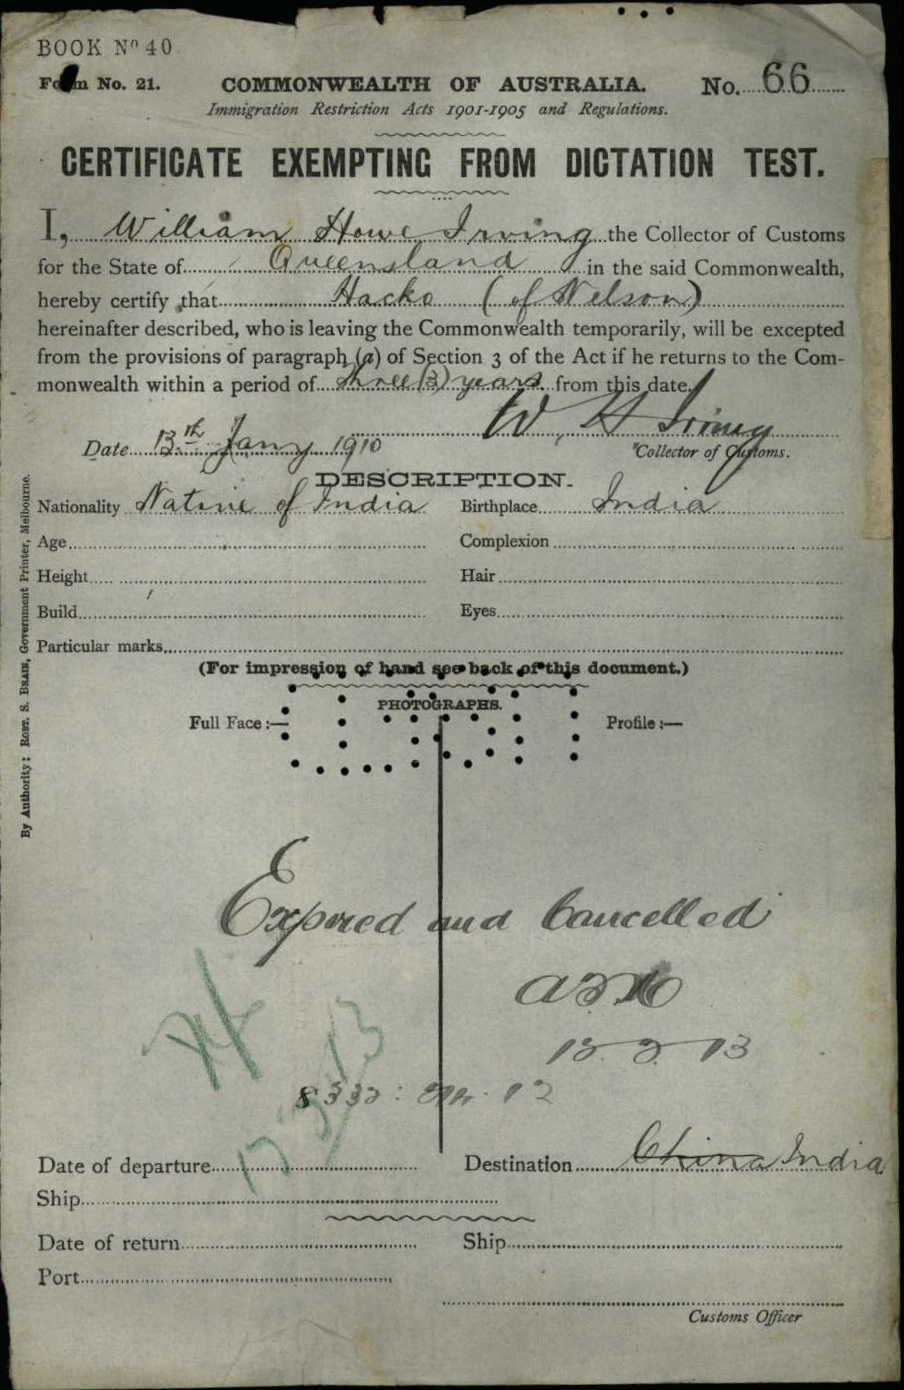 BOOK No 40
Form No. 21. COMMONWEALTH OF AUSTRALIA. No. 66
Immigration Restriction Acts 1901-1905 and Regulations.
CERTIFICATE EXEMPTING FROM DICTATION TEST.
I, William Howe Irving the Collector of Customs
for the State of Queensland in the said Commonwealth,
hereby certify that Hacko (of Nelson)
hereinafter described, who is leaving the Commonwealth temporarily, will be excepted
from the provisions of paragraph (a) of Section 3 of the Act if he returns to the Com-
monwealth within a period of three (3) years from this date.
W. H. Irving
Date 13th Jany 1910 Collector of Customs.
DESCRIPTION.
Nationality Native of India Birthplace India
Age Complexion
Height Hair
Build Eyes
Particular marks
(For impression of hand see back of this document.)
PHOTOGRAPHS.
Full Face :— Profile :—
Expired and Cancelled
13
Date of departure Destination China India
Ship
Date of return Ship
Port
Customs Officer
By Authority: ROBT. S. BRAIN, Government Printer, Melbourne.